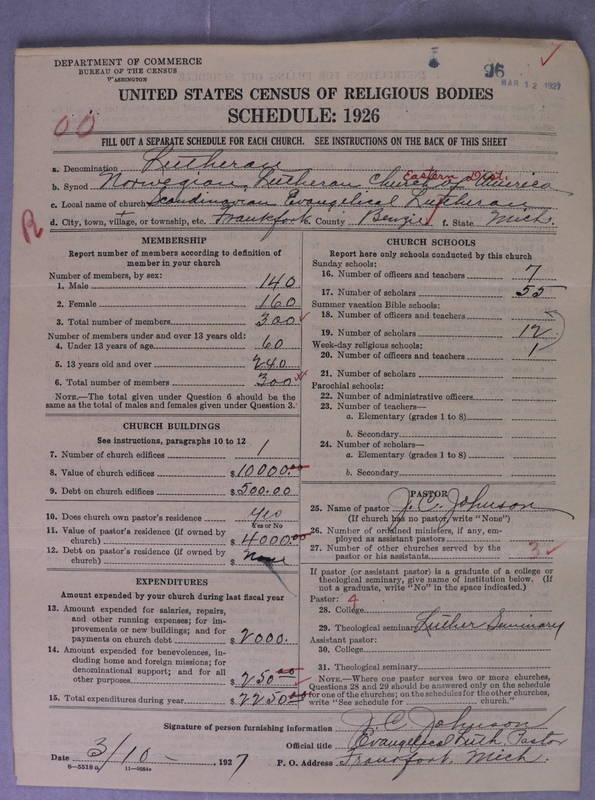 DEPARTMENT OF COMMERCE
BUREAU OF THE CENSUS
WASHINGTON
96
MAR 12 1927
UNITED STATES CENSUS OF RELIGIOUS BODIES
SCHEDULE: 1926
00
FILL OUT A SEPARATE SCHEDULE FOR EACH CHURCH. SEE INSTRUCTIONS ON THE BACK OF THIS SHEET
a. Denomination Lutheran
Eastern Dist.
b. Synod Norwegian Lutheran Church of America
c. Local name of church Scandinavian Evangelical Lutheran
d. City, town, village, or township, etc. Frankfort e. County Benzie f. State Mich.
R
MEMBERSHIP
Report number of members according to definition of
member in your church
Number of members, by sex:
1. Male 140
2. Female 160
3. Total number of members 300
Number of members under and over 13 years old:
4. Under 13 years of age 60
5. 13 years old and over 240
6. Total number of members 300
NOTE.—The total given under Question 6 should be the
same as the total of males and females given under Question 3.
CHURCH BUILDINGS
See instructions, paragraphs 10 to 12
7. Number of church edifices 1
8. Value of church edifices $10000.00
9. Debt on church edifices $500.00
10. Does church own pastor's residence yes
Yes or No
11. Value of pastor's residence (if owned by
church) $4000.00
12. Debt on pastor's residence (if owned by
church) $ None
EXPENDITURES
Amount expended by your church during last fiscal year
13. Amount expended for salaries, repairs,
and other running expenses; for im-
provements or new buildings; and for
payments on church debt $2000.
14. Amount expended for benevolences, in-
cluding home and foreign missions; for
denominational support; and for all
other purposes $250.00
15. Total expenditures during year $2250.00
CHURCH SCHOOLS
Report here only schools conducted by this church
Sunday schools:
16. Number of officers and teachers 7
17. Number of scholars 55
Summer vacation Bible schools:
18. Number of officers and teachers
19. Number of scholars 12
Week-day religious schools:
20. Number of officers and teachers 1
21. Number of scholars
Parochial schools:
22. Number of administrative officers
23. Number of teachers—
a. Elementary (grades 1 to 8)
b. Secondary
24. Number of scholars—
a. Elementary (grades 1 to 8)
b. Secondary
PASTOR
25. Name of pastor J. C. Johnson
(If church has no pastor, write "None")
26. Number of ordained ministers, if any, em-
ployed as assistant pastors
27. Number of other churches served by the
pastor or his assistants 3
If pastor (or assistant pastor) is a graduate of a college or
theological seminary, give name of institution below. (If
not a graduate, write "No" in the space indicated.)
Pastor: 4
28. College
29. Theological seminary Luther Seminary
Assistant pastor:
30. College
31. Theological seminary
NOTE.—Where one pastor serves two or more churches,
Questions 28 and 29 should be answered only on the schedule
for one of the churches; on the schedules for the other churches,
write "See schedule for church."
Signature of person furnishing information J. C. Johnson
Official title Evangelical Luth. Pastor
Date 3/10 - 1927 P. O. Address Frankfort, Mich.
8—5518 a 11—9584